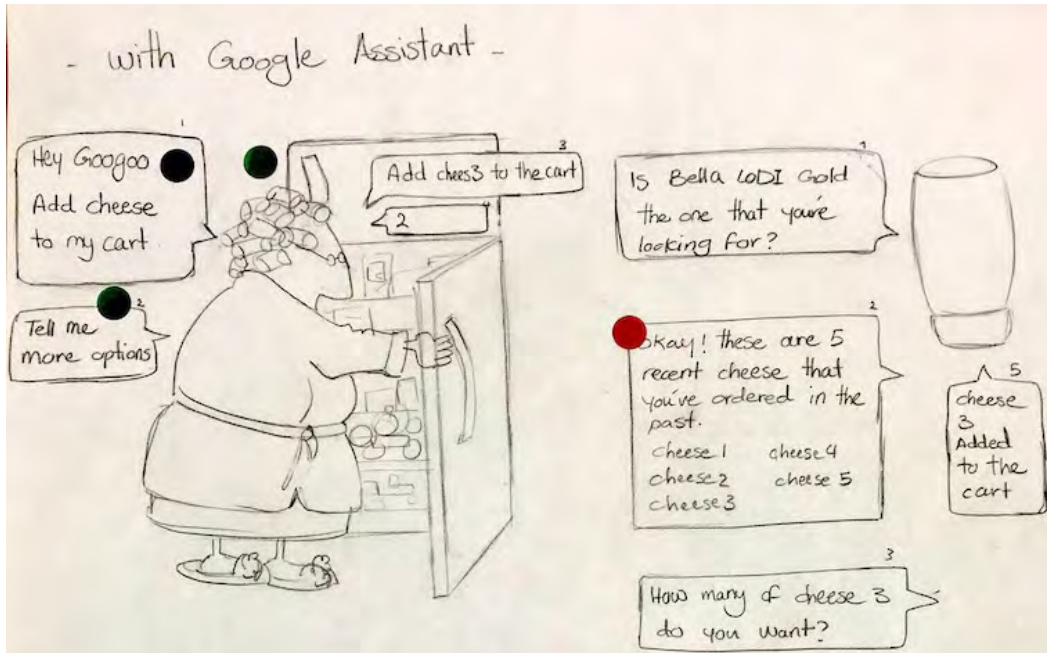 - with Google Assistant -
1
Hey Googoo
Add cheese
to my cart
2
Tell me
more options
3
Add chees3 to the cart
4
2
1
Is Bella LODI Gold
the one that you're
looking for?
2
Okay! these are 5
recent cheese that
you've ordered in the
past.
cheese 1 cheese 4
cheese 2 cheese 5
cheese 3
3
How many of cheese 3
do you want?
5
cheese
3
Added
to the
cart